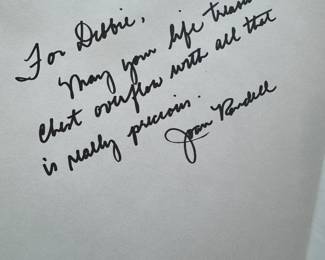 For Debbie,
"May your life treasure
chest overflow with all that
is really precious.
Joan Rundell